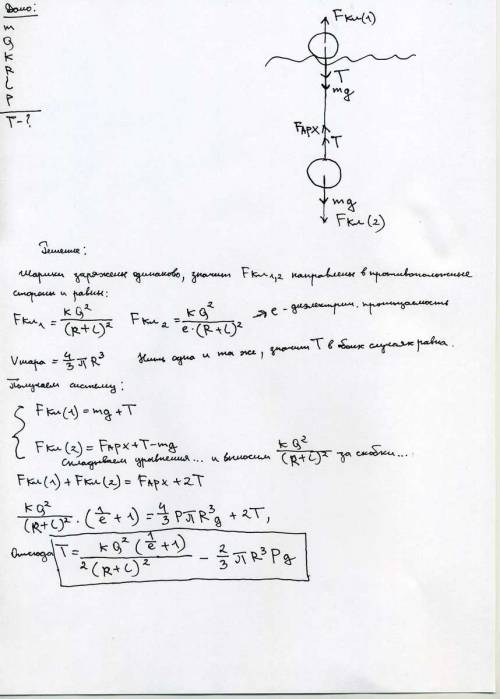 Дано:
m
Q
K
R
L
P
T-?
Fкл(1)
T
mg
FАРХ
T
mg
Fкл(2)
Решение:
Шарики заряжены одинаково, значит Fкл1,2 направлены в противоположные
стороны и равны:
Fкл1 = KQ²/(R+L)² Fкл2 = KQ²/e·(R+L)² → e - диэлектрич. проницаемость
Vшара = 4/3 πR³ Нить одна и та же, значит T в обоих случаях равна.
Получаем систему:
Fкл(1) = mg+T
Fкл(2) = FАРХ+T-mg
Складываем уравнения... и выносим KQ²/(R+L)² за скобки...
Fкл(1)+Fкл(2) = FАРХ+2T
KQ²/(R+L)² · (1/e+1) = 4/3 PπR³g + 2T,
Отсюда T = KQ²(1/e+1)/2(R+L)² - 2/3 πR³Pg